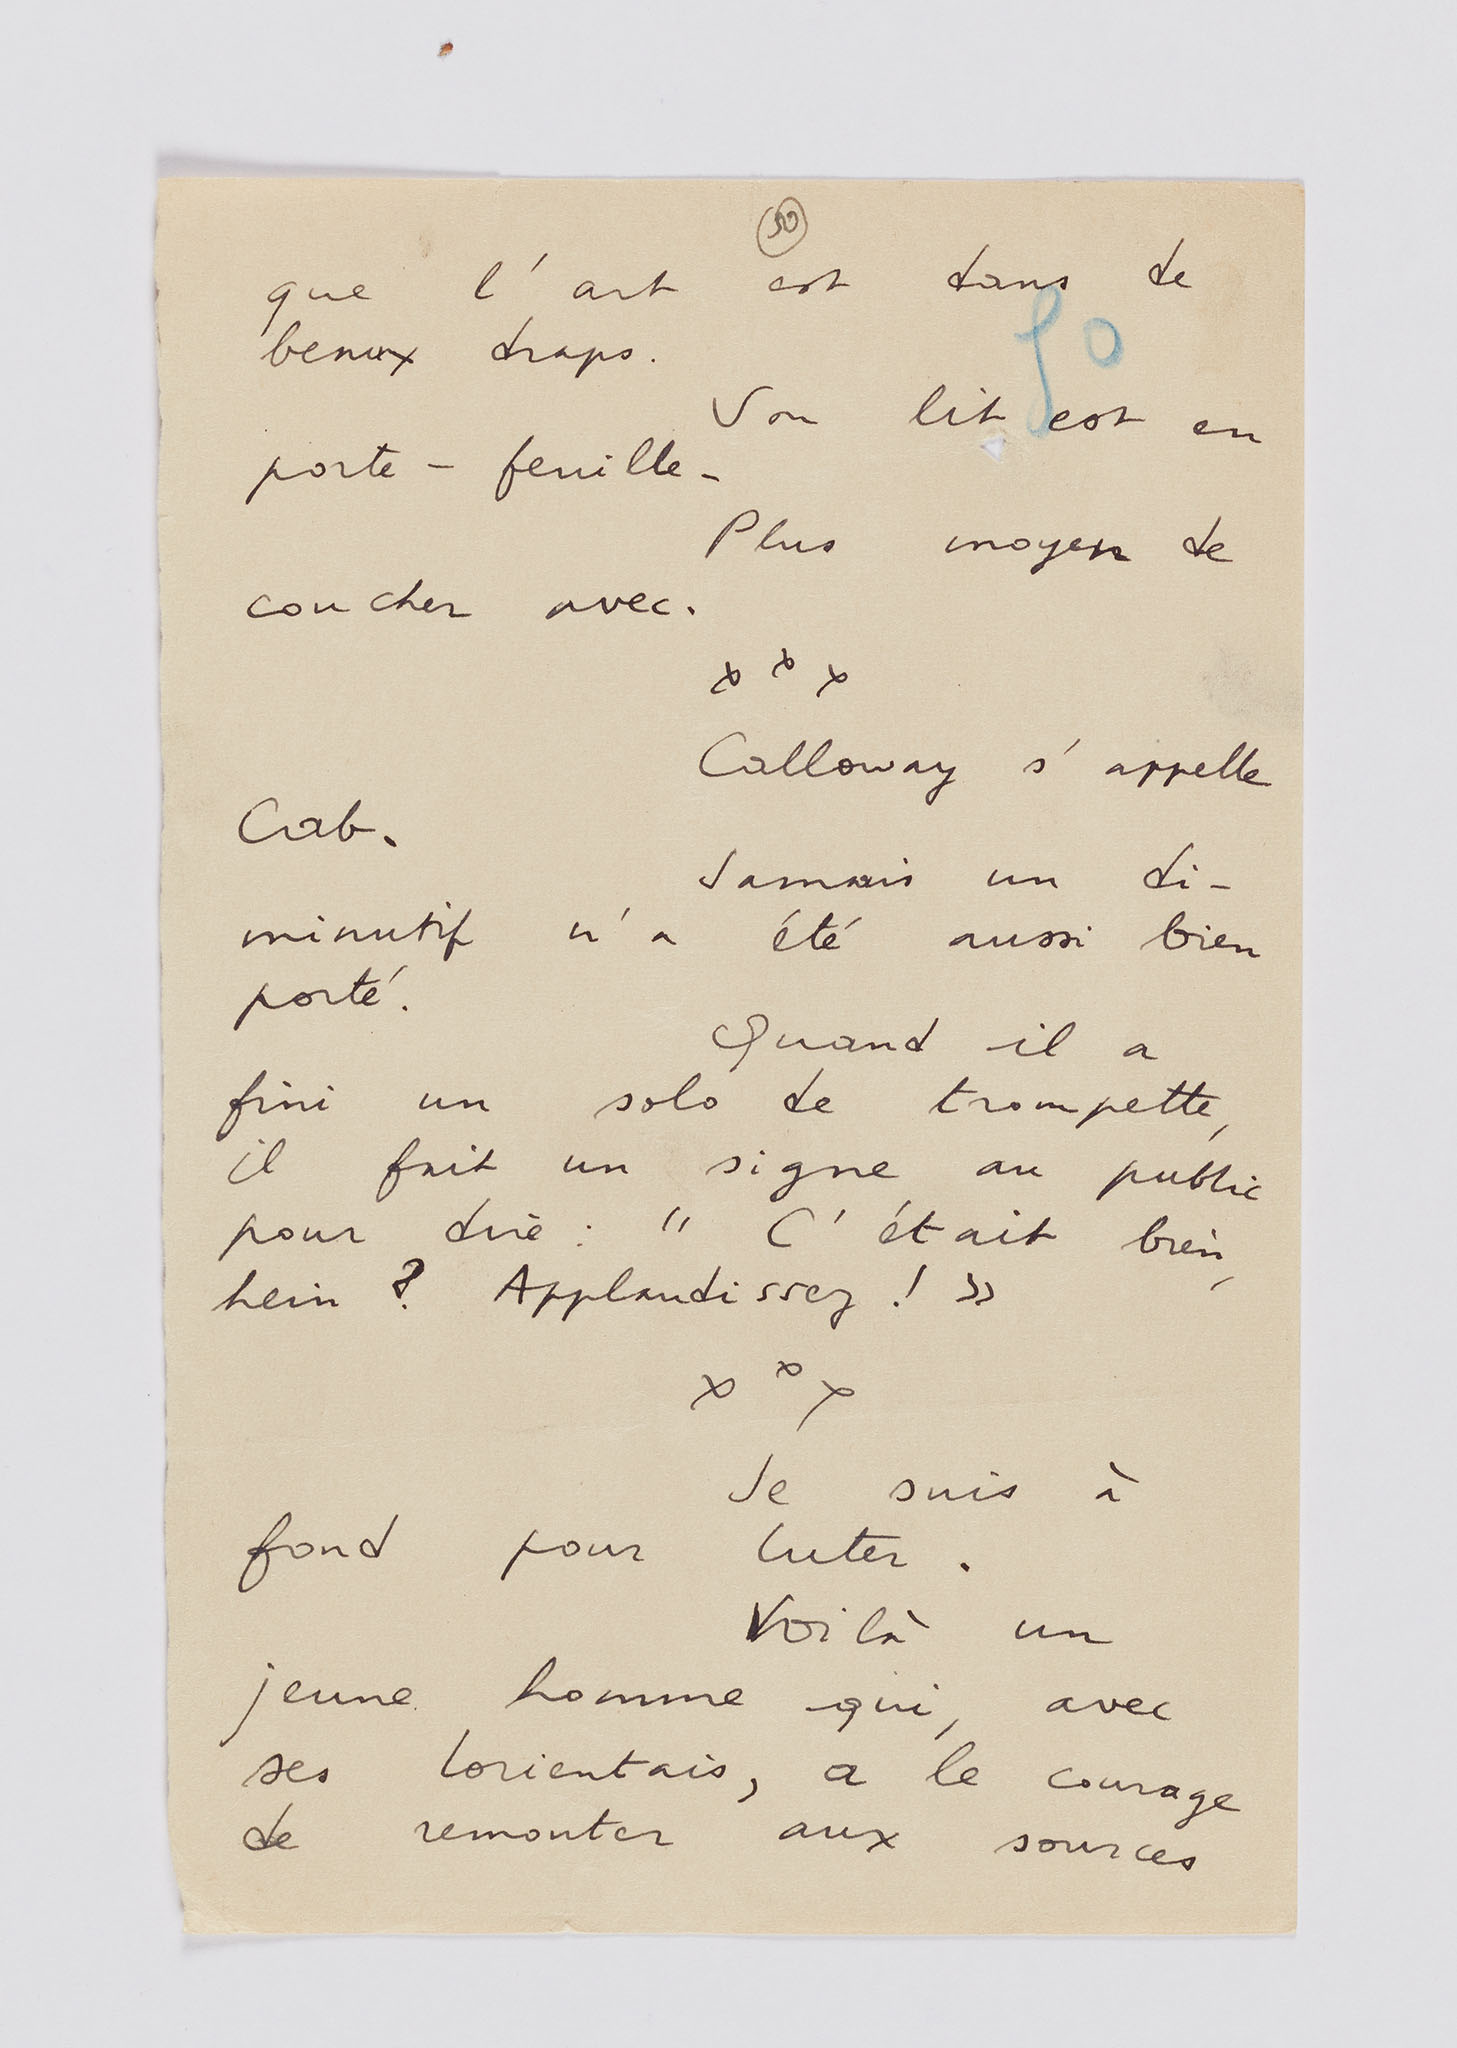 50
que l'art est dans de
50
beaux draps.
Son lit est en
porte-feuille.
Plus moyen de
coucher avec.
x x x
Calloway s'appelle
Cab.
Jamais un di-
minutif n'a été aussi bien
porté.
Quand il a
fini un solo de trompette,
il fait un signe au public
pour dire : " C'était bien,
hein ? Applaudissez ! »
x x x
Je suis à
fond pour Luter.
Voilà un
jeune homme qui, avec
ses Lorientais, a le courage
de remonter aux sources